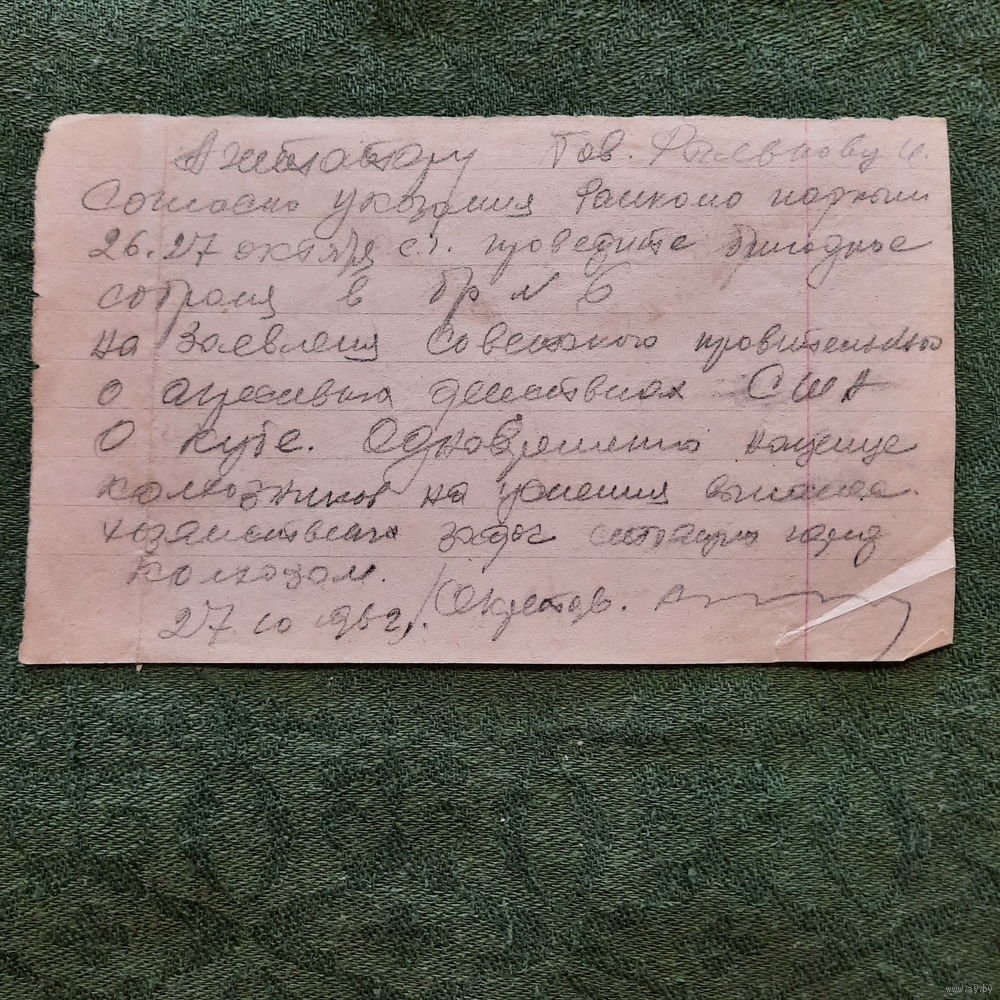 Агитатору Тов.
Согласно указания Райкома партии
26.27 октября с.г. проведите бригадное
собрания в бр № 6
на заявления Советского правительство
о агресивных действиях США
о Кубе. Одновременно нацелще
колхозников на усиления выполнен.
хозяйственных задач
колхозом.
27 10 962г. Секретарь.
www.ay.by